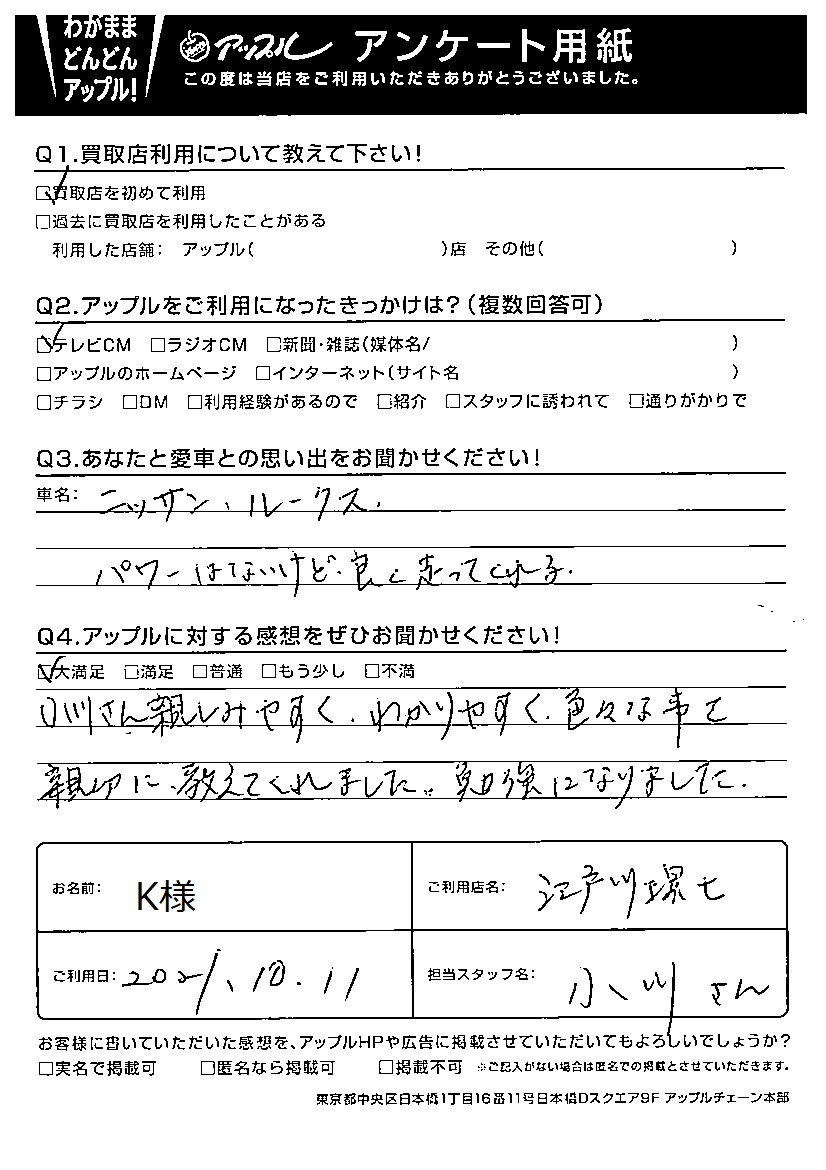 わがまま
どんどん
アップル!
アップル アンケート用紙
この度は当店をご利用いただきありがとうございました。
Q1.買取店利用について教えて下さい!
☑買取店を初めて利用
□過去に買取店を利用したことがある
利用した店舗: アップル( )店 その他( )
Q2.アップルをご利用になったきっかけは?(複数回答可)
☑テレビCM □ラジオCM □新聞・雑誌(媒体名/ )
□アップルのホームページ □インターネット(サイト名 )
□チラシ □DM □利用経験があるので □紹介 □スタッフに誘われて □通りがかりで
Q3.あなたと愛車との思い出をお聞かせください!
車名: ニッサン、ルークス.
パワーはないけど、良く走ってくれる.
Q4.アップルに対する感想をぜひお聞かせください!
☑大満足 □満足 □普通 □もう少し □不満
小川さん親しみやすく、わかりやすく、色々な事を
親切に、教えてくれました。勉強になりました.
お名前: K様
ご利用店名: 江戸川環七
ご利用日: 2021、10.11
担当スタッフ名: 小川さん
お客様に書いていただいた感想を、アップルHPや広告に掲載させていただいてもよろしいでしょうか?
□実名で掲載可 □匿名なら掲載可 □掲載不可 ※ご記入がない場合は匿名での掲載とさせていただきます。
東京都中央区日本橋1丁目16番11号日本橋Dスクエア9F アップルチェーン本部